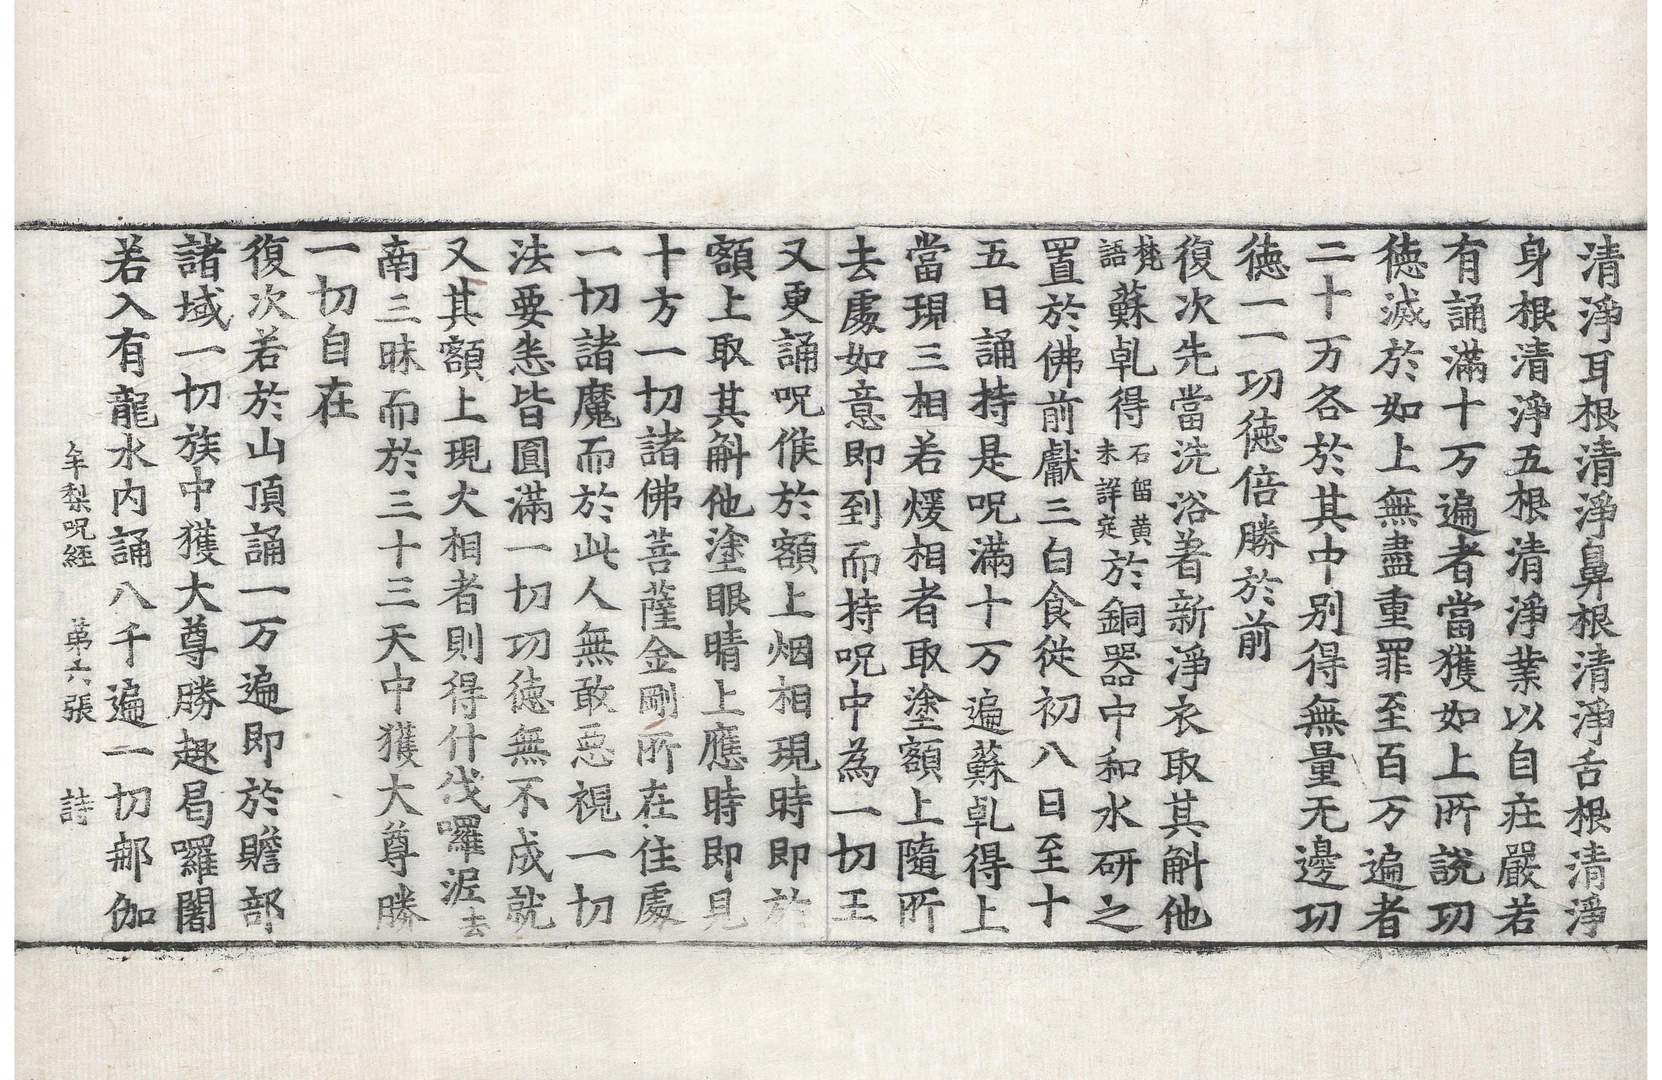 清淨耳根清淨鼻根清淨舌根清淨
身根清淨五根清淨業以自莊嚴若
有誦滿十万遍者當獲如上所說功
德滅於如上無盡重罪至百万遍者
二十一万各於其中別得無量无邊功
德一一功德倍勝於前
復次先當洗浴著新淨衣取其斛他
梵語蘇乹得石留黄未詳㝎於銅器中和水研之
置於佛前獻三白食從初八日至十
五日誦持是呪滿十万遍蘇乹得上
當現三相若煖相者取塗額上隨所
去處如意即到而持呪中為一切王
又更誦呪候於額上烟相現時即於
額上取其斛他塗眼睛上應時即見
十方一切諸佛菩薩金剛所在住處
一切諸魔而於此人無敢惡視一切
法要悉皆圓滿一切功德無不成就
又其額上現火相者則得什伐囉泥去
南三昧而於三十三天中獲大尊勝
一切自在
復次若於山頂誦一万遍即於贍部
諸域一切族中獲大尊勝趣曷囉闍
若入有龍水内誦八千遍一切那伽
牟梨呪經　第六張　詩